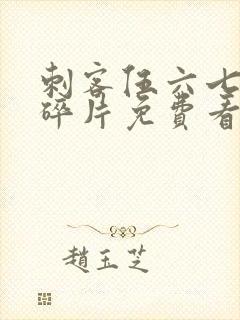 刺客伍六七
碎片免費看
趙玉芝